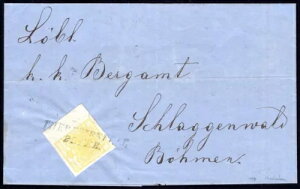 Löbl.
k. k. Bergamt
Schlaggenwald
Böhmen.